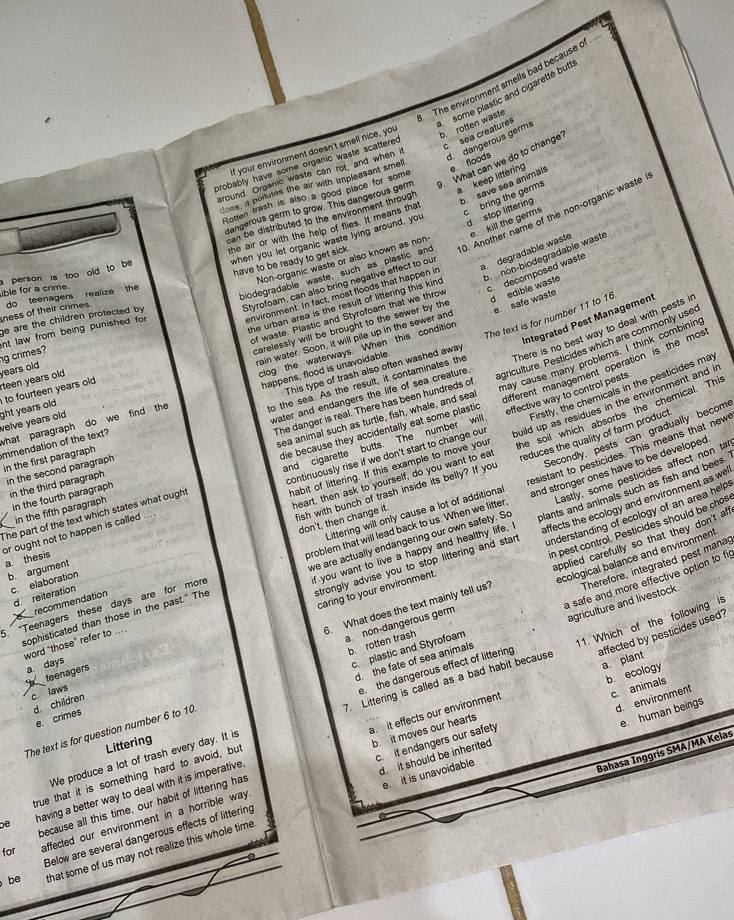 a person is too old to be
ible for a crime.
do teenagers realize the
sness of their crimes.
ge are the children protected by
ent law from being punished for
ng crimes?
years old
rteen years old
n to fourteen years old
ght years old
welve years old
what paragraph do we find the
ommendation of the text?
in the first paragraph
in the second paragraph
in the third paragraph
in the fourth paragraph
in the fifth paragraph
The part of the text which states what ought
or ought not to happen is called ....
a. thesis
b. argument
c. elaboration
d. reiteration
recommendation
5. "Teenagers these days are for more
sophisticated than those in the past." The
word "those" refer to ....
a. days
b. teenagers
c. laws
d. children
e. crimes
The text is for question number 6 to 10.
Littering
We produce a lot of trash every day. It is
true that it is something hard to avoid, but
having a better way to deal with it is imperative,
because all this time, our habit of littering has
affected our environment in a horrible way.
Below are several dangerous effects of littering
that some of us may not realize this whole time.
be
for
be
If your environment doesn't smell nice, you
probably have some organic waste scattered
around. Organic waste can rot, and when it
does, it pollutes the air with unpleasant smell.
Rotten trash is also a good place for some
dangerous germ to grow. This dangerous germ
can be distributed to the environment through
the air or with the help of flies. It means that
when you let organic waste lying around, you
have to be ready to get sick.
Non-organic waste or also known as non-
biodegradable waste, such as plastic and
Styrofoam, can also bring negative effect to our
environment. In fact, most floods that happen in
the urban area is the result of littering this kind
of waste. Plastic and Styrofoam that we throw
carelessly will be brought to the sewer by the
rain water. Soon, it will pile up in the sewer and
clog the waterways. When this condition
happens, flood is unavoidable.
This type of trash also often washed away
to the sea. As the result, it contaminates the
water and endangers the life of sea creature.
The danger is real. There has been hundreds of
sea animal such as turtle, fish, whale, and seal
die because they accidentally eat some plastic
and cigarette butts. The number will
continuously rise if we don't start to change our
habit of littering. If this example to move your
heart, then ask to yourself, do you want to eat
fish with bunch of trash inside its belly? If you
don't, then change it.
Littering will only cause a lot of additional
problem that will lead back to us. When we litter,
we are actually endangering our own safety. So
if you want to live a happy and healthy life, I
strongly advise you to stop littering and start
caring to your environment.
6. What does the text mainly tell us?
a. non-dangerous germ
b. rotten trash
c. plastic and Styrofoam
d. the fate of sea animals
e. the dangerous effect of littering
7. Littering is called as a bad habit because
....
a. it effects our environment
b. it moves our hearts
c. it endangers our safety
d. it should be inherited
e. it is unavoidable
8. The environment smells bad because of ....
a. some plastic and cigarette butts
b. rotten waste
c. sea creatures
d. dangerous germs
e. floods
9. What can we do to change?
a. keep littering
b. save sea animals
c. bring the germs
d. stop littering
e. kill the germs
10. Another name of the non-organic waste is
a. degradable waste
b. non-biodegradable waste
c. decomposed waste
d. edible waste
e. safe waste
The text is for number 11 to 16.
Integrated Pest Management
There is no best way to deal with pests in
agriculture. Pesticides which are commonly used
may cause many problems. I think combining
different management operation is the most
effective way to control pests.
Firstly, the chemicals in the pesticides may
build up as residues in the environment and in
the soil which absorbs the chemical. This
reduces the quality of farm product.
Secondly, pests can gradually become
resistant to pesticides. This means that newe
and stronger ones have to be developed.
Lastly, some pesticides affect non targ
plants and animals such as fish and bees. T
affects the ecology and environment as well.
understanding of ecology of an area helps
in pest control. Pesticides should be chose
applied carefully so that they don't affe
ecological balance and environment.
Therefore, integrated pest manag
a safe and more effective option to fig
agriculture and livestock.
11. Which of the following is
affected by pesticides used?
a. plant
b. ecology
c. animals
d. environment
e. human beings
Bahasa Inggris SMA/MA Kelas